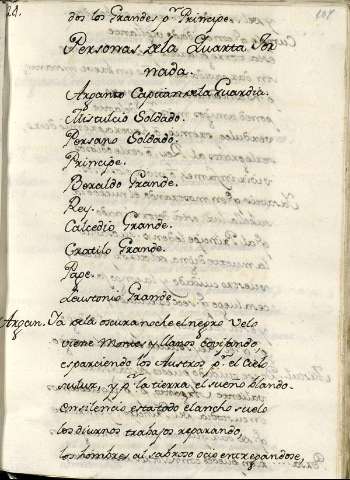 dos los Grandes pr. Principe.
Personas de la Quarta Jor
nada.
Arganto Capitan de la Guardia.
Mistulcio Soldado.
Persano Soldado.
Principe.
Beraldo Grande.
Rey.
Calcedio Grande.
Gratilo Grande.
Page.
Leustonio Grande.
Argan. Ya de la oscura noche el negro velo
viene Montes y llanos covijando
esparciendo los Austros pr. el Cielo
su luz, y pr. la tierra el sueño blando.
en silencio esta todo el ancho suelo
los diurnos trabajos reparando,
los hombres al sabroso ocio entregandose,